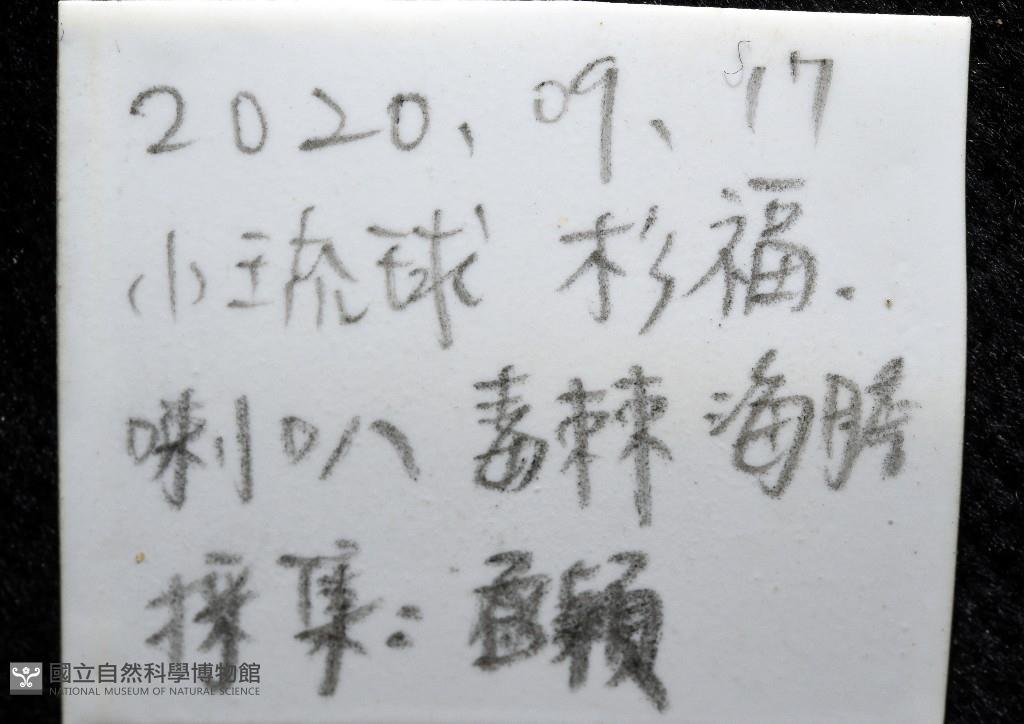 2020、09、17
小琉球 杉福.
喇叭 毒棘 海胆
採集:
國立自然科學博物館
NATIONAL MUSEUM OF NATURAL SCIENCE